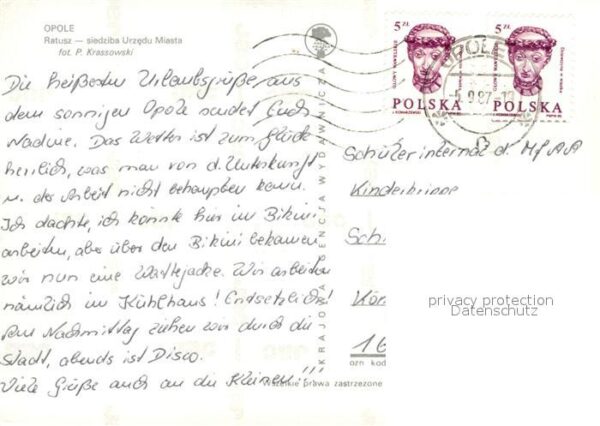 OPOLE
Ratusz — siedziba Urzędu Miasta
fot. P. Krassowski
Die heißesten Urlaubsgrüße aus
dem sonnigen Opole sendet Euch
Nadine. Das Wetter ist zum Glück
herrlich, was man von d. Unterkunft
u. der Arbeit nicht behaupten kann.
Ich dachte, ich könnte hier im Bikini
arbeiten, aber über den Bikini bekamen
wir nun eine Wattejacke. Wir arbeiten
nämlich im Kühlhaus! Entsetzlich!
Am Nachmittag ziehen wir durch die
Stadt, abends ist Disco.
Viele Grüße auch an die Kleinen!!!
KRAJOWA AGENCJA WYDAWNICZA
5 ZŁ
POLSKA
5 ZŁ
POLSKA
OPOLE
Schülerinternat d.
Kinderkrippe
Sch
privacy protection
Datenschutz
16
ozn kod
Wszelkie prawa zastrzeżone